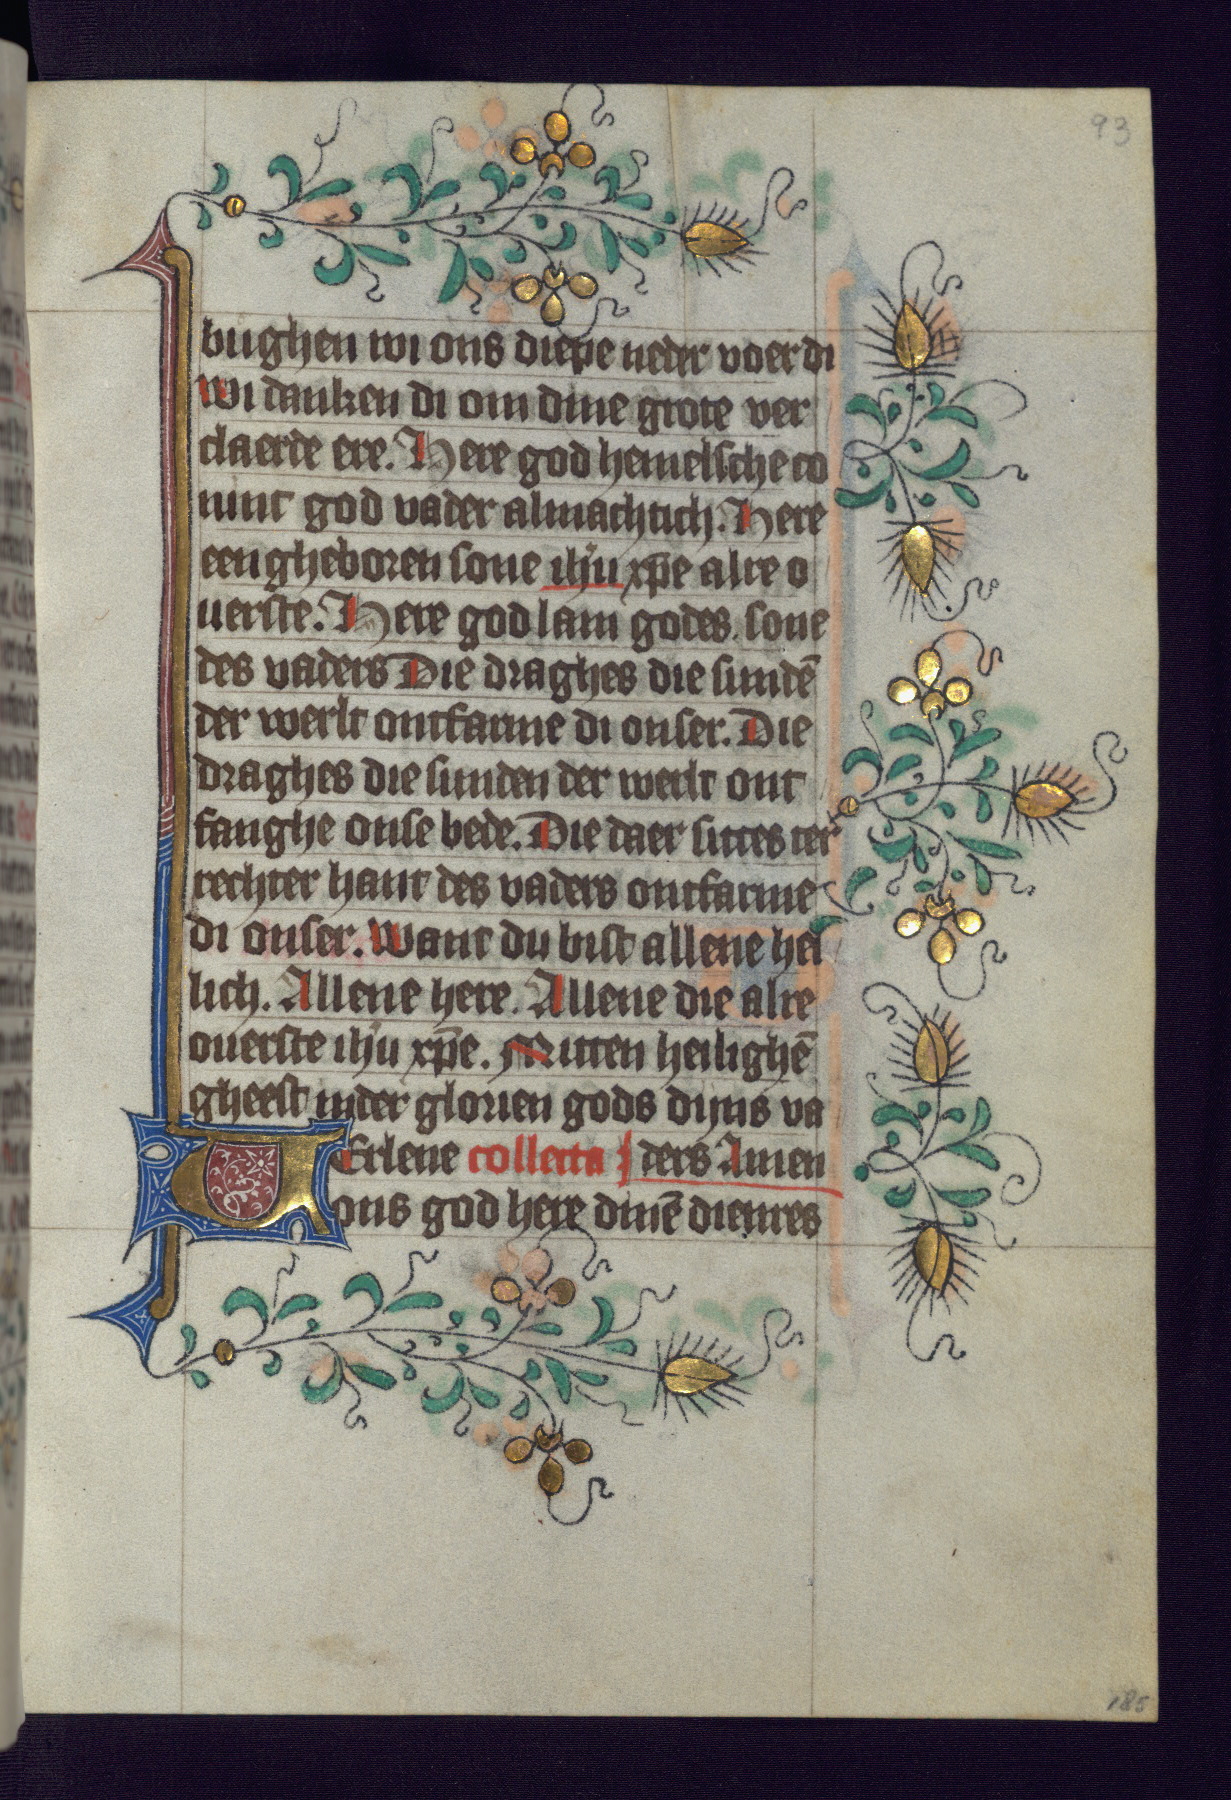 93
bughen wi ons diepe neder voer di
Wi danken di om dine grote ver
claerde ere. Here god hemelsche co
ninc god vader almachtich. Here
een gheboren sone ihu xpe alre o
uerste. Here god lam godes. sone
des vaders Die draghes die sundē
der werlt ontfarme di onser. Die
draghes die sunden der werlt ont
fanghe onse bede. Die daer sittes ter
rechter hant des vaders ontfarme
di onser. Want du bist allene hei
lich. Allene here. Allene die alre
ouerste ihu xpē. Mitten heilighē
gheest inder glorien gods dijns va
VErlene collecta ders Amen
ons god here dinē dienres
185